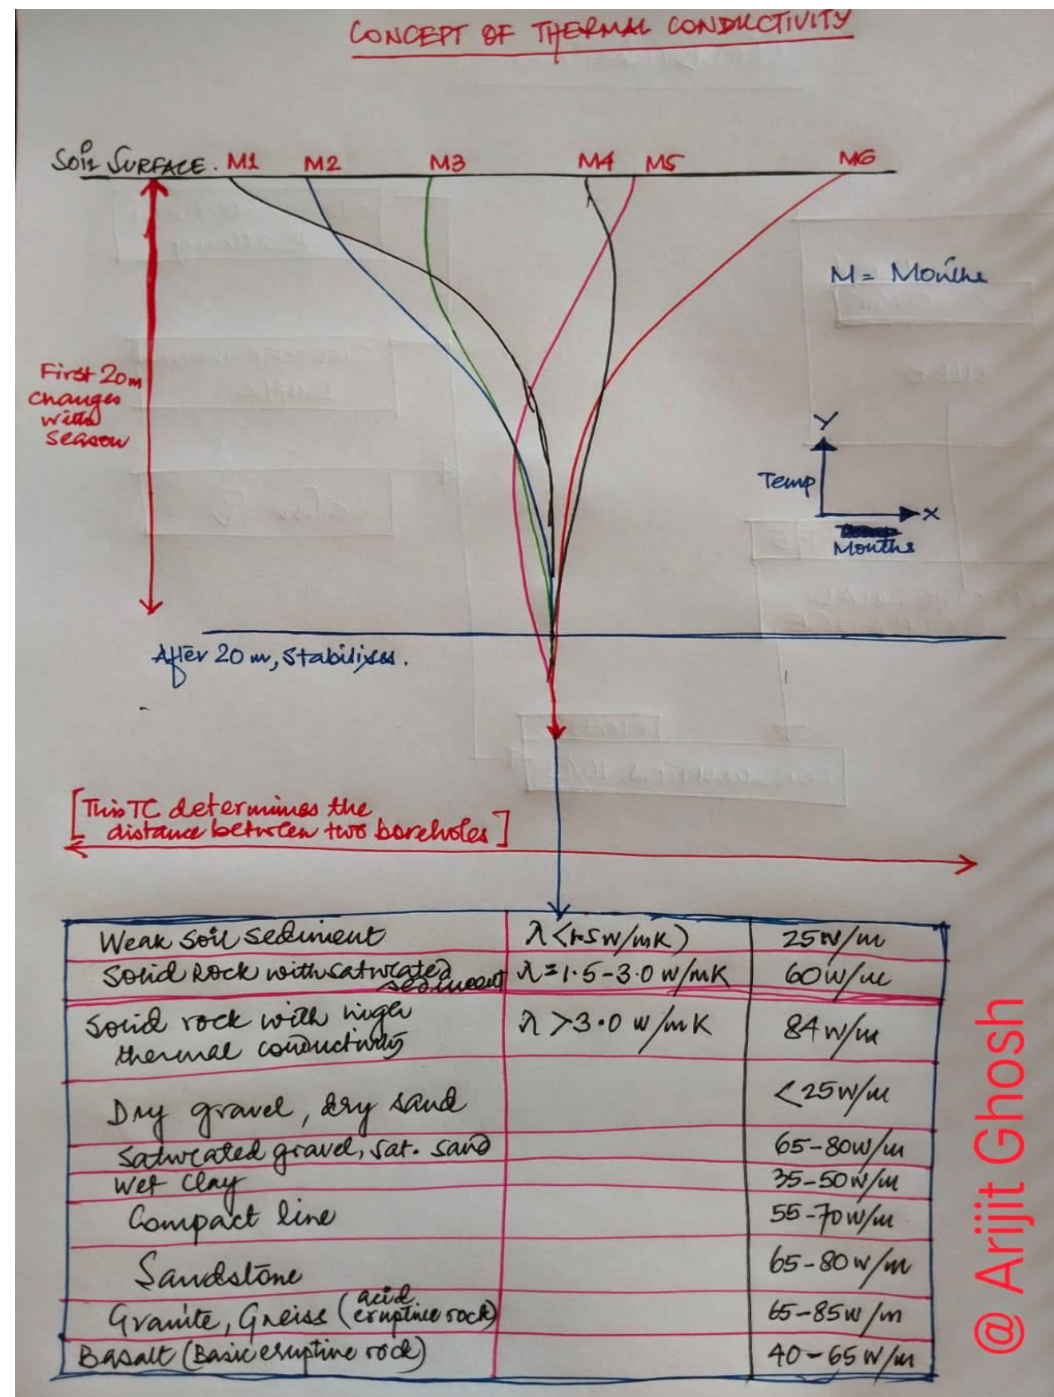 CONCEPT OF THERMAL CONDUCTIVITY
SOIL SURFACE. M1 M2 M3 M4 M5 M6
M = Months
First 20m
changes
with
season
Y
Temp
X
Months
After 20 m, Stabilises.
[This TC determines the
distance between two boreholes]
Weak soil sediment λ <1.5 W/mK) 25 W/m
Solid Rock with saturated sediment λ = 1.5-3.0 W/mK 60 W/m
Solid rock with higher
thermal conductivity λ > 3.0 W/mK 84 W/m
Dry gravel, dry sand <25 W/m
Saturated gravel, sat. sand 65-80 W/m
Wet clay 35-50 W/m
Compact line 55-70 W/m
Sandstone 65-80 W/m
Granite, Greiss (acid eruptive rock) 65-85 W/m
Basalt (Basic eruptive rock) 40-65 W/m
@ Arijit Ghosh